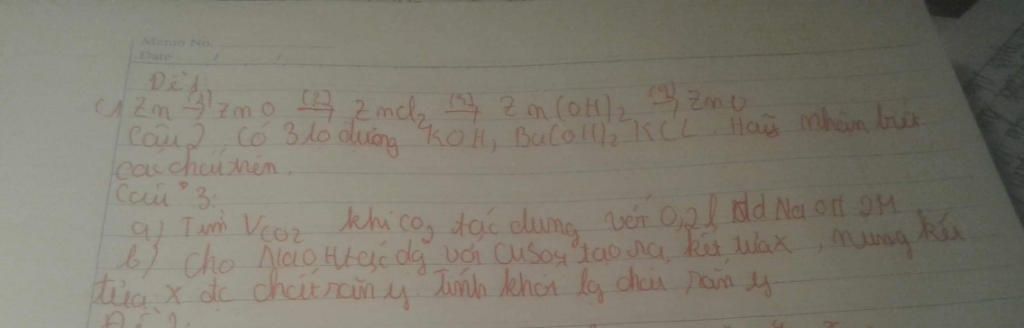 Memo No.
Date / /
Đề 1
C1 Zn (1)→ ZnO (2)→ ZnCl₂ (3)→ Zn(OH)₂ (4)→ ZnO
Câu 2 Có 3 lọ đựng KOH, Ba(OH)₂ KCL. Hãy nhận biết
các chất trên.
Câu 3:
a) Tìm VCO2 khi CO₂ tác dụng với 0,2l dd NaOH 2M
b) Cho NaOH tác dg với CuSO₄ tạo ra kết tủa X, nung kết
tủa X đc chất rắn y Tính khối lg chất rắn y